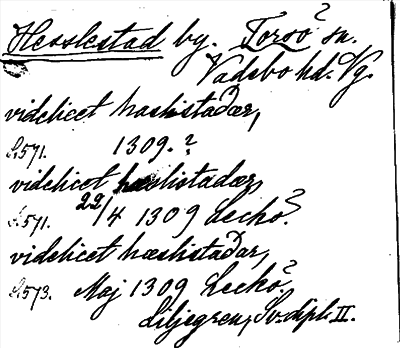 Hesslestad by. Torsö? sn.
Vadsbo hd. Vg.
videlicet hæslistaðær,
S.571. 1309.?
videlicet hæslistadær,
S.571. 22/4 1309 Lecko?
videlicet hæslistaðar,
S.573. Maj 1309 Lecko?,
Liljegren, Sv. dipl. II.